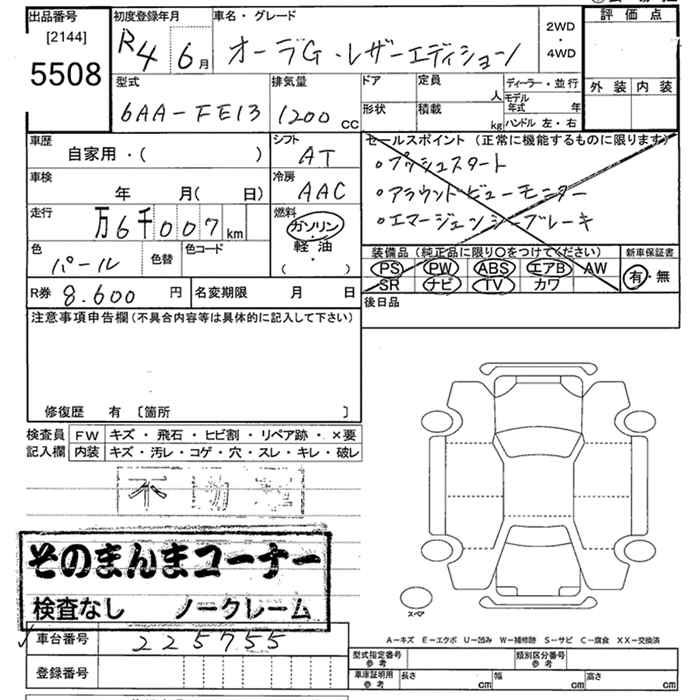 出品番号
[2144]
5508
初度登録年月
R4 6月
車名・グレード
オーラG・レザーエディション
2WD
・
4WD
評価点
外装 内装
型式
6AA-FE13
排気量
1200 cc
ドア
形状
定員 人
積載 kg
ディーラー・並行
モデル年式 年
ハンドル 左・右
車歴
自家用・( )
シフト
AT
車検
年 月( 日)
冷房
AAC
走行
万6千007km
燃料
ガソリン
・
軽油
( )
色
パール
色替
色コード
R券 8.600 円
名変期限 月 日
セールスポイント (正常に機能するものに限ります)
・プッシュスタート
・アラウンドビューモニター
・エマージェンシーブレーキ
装備品 (純正品に限り○をつけてください)
PS PW ABS エアB AW
SR ナビ TV カワ
新車保証書
有・無
後日品
注意事項申告欄 (不具合内容等は具体的に記入して下さい)
修復歴 有 〔箇所 〕
検査員
記入欄
FW キズ・飛石・ヒビ割・リペア跡・×要
内装 キズ・汚レ・コゲ・穴・スレ・キレ・破レ
不動
そのまんまコーナー
検査なし ノークレーム
車台番号 225755
登録番号
スペア
A－キズ E－エクボ U－凹み W－補修跡 S－サビ C－腐食 XX－交換済
型式指定番号
参考
類別区分番号
参考
車庫証明用
参考
長さ cm
幅 cm
高さ cm